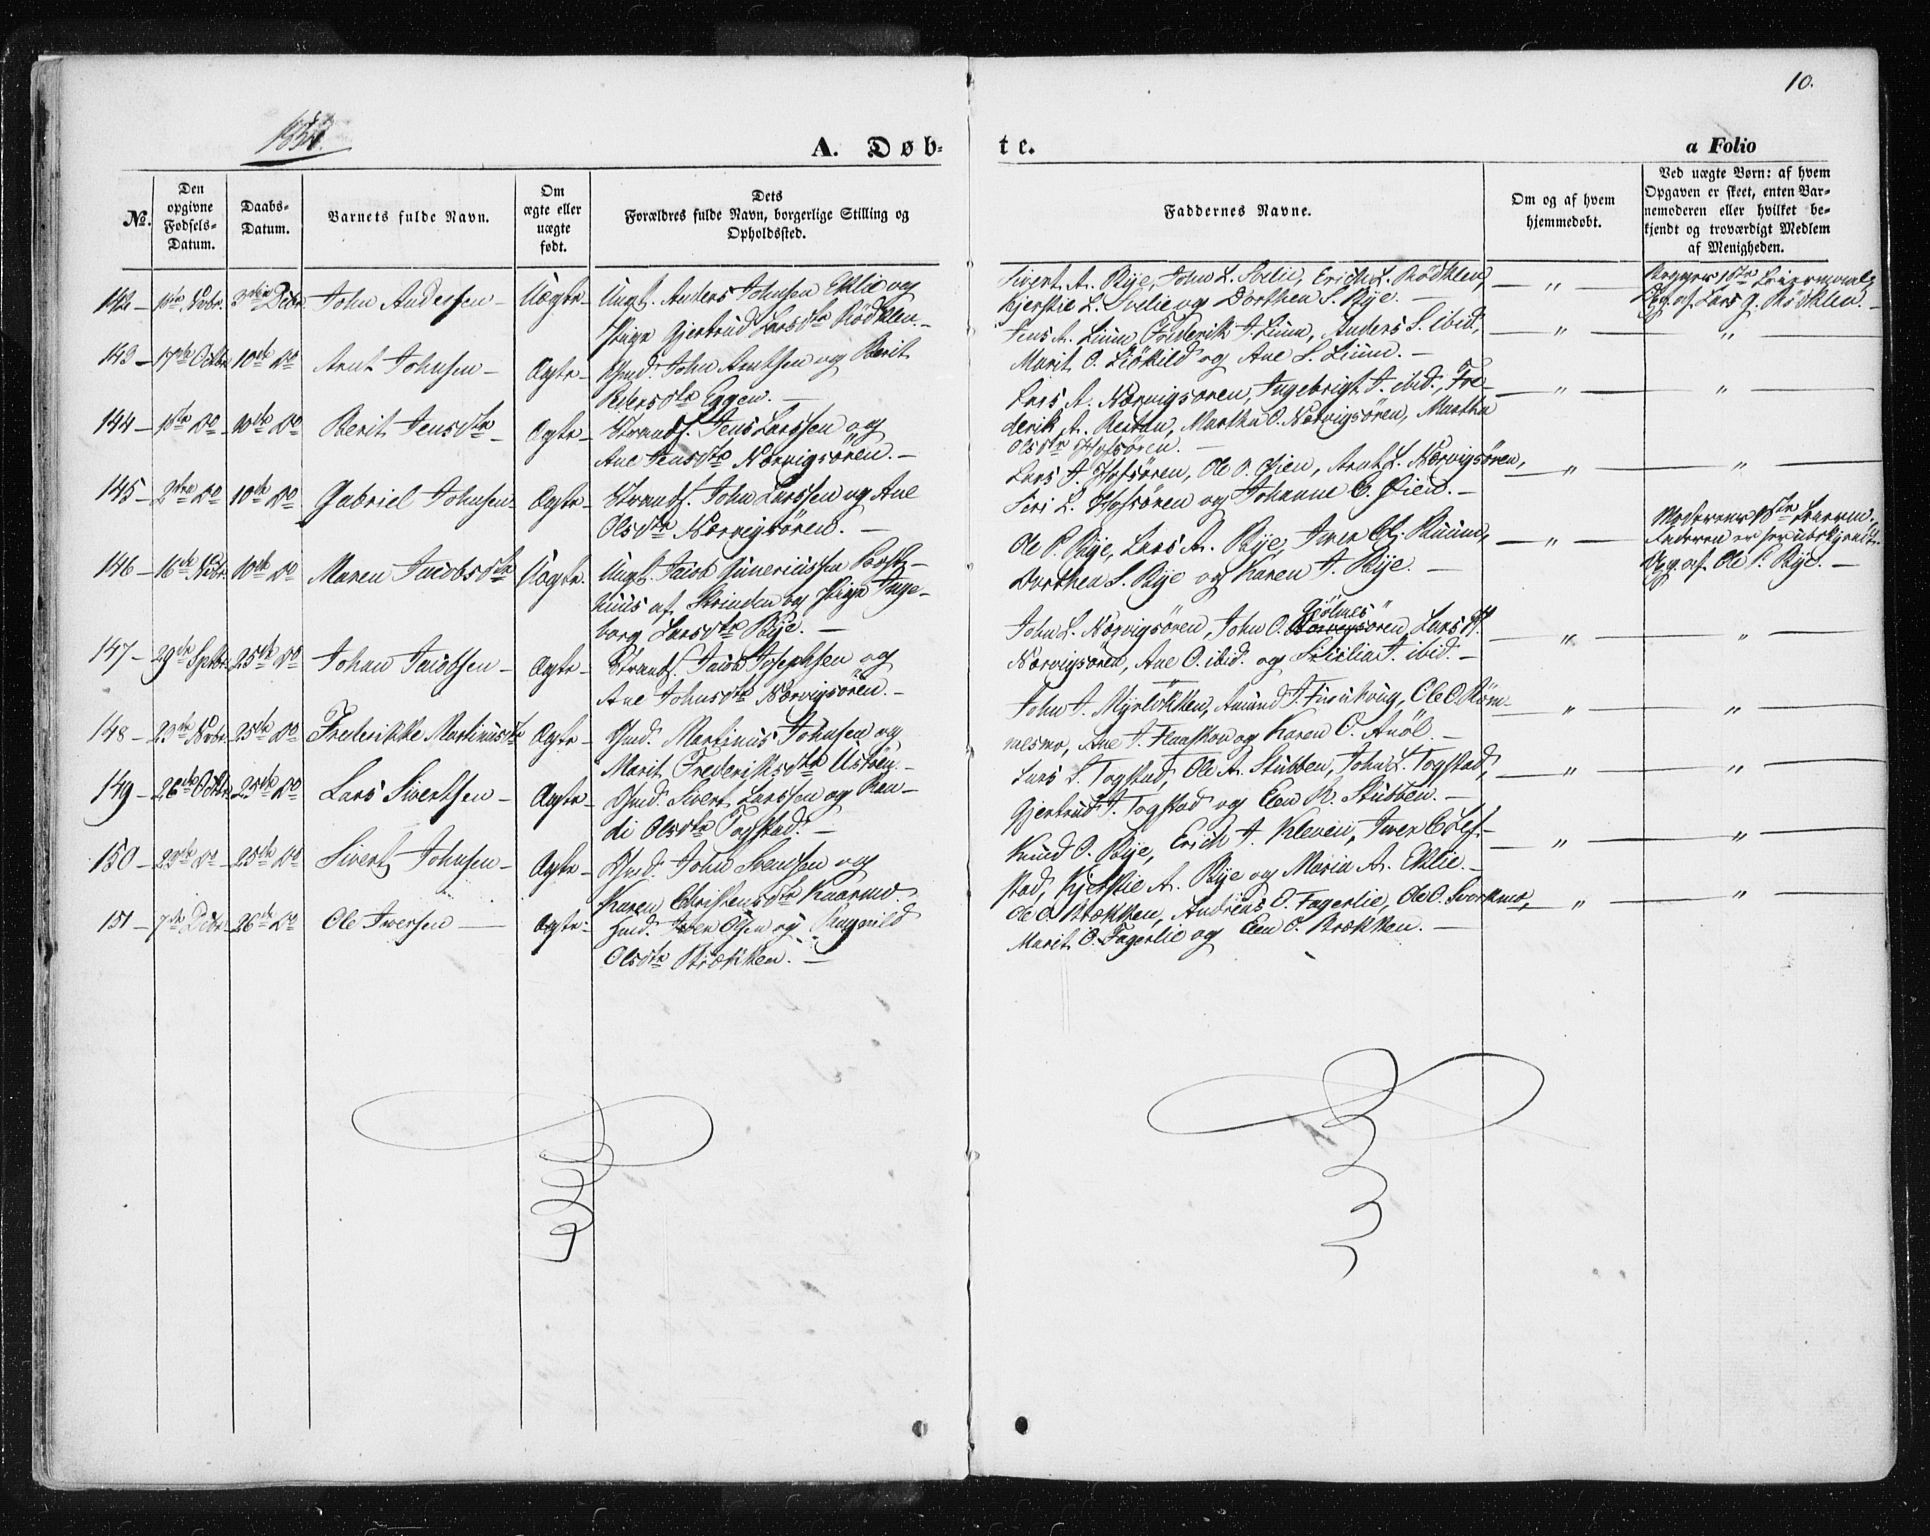 10.
A. Døb-
te.
a Folio
No.
Den opgivne Fødsels-Datum.
Daabs-Datum.
Barnets fulde Navn.
Om ægte eller uægte født.
Dets Forældres fulde Navn, borgerlige Stilling og Opholdssted.
Faddernes Navne.
Om og af hvem hjemmedøbt.
Ved uægte Børn: af hvem Opgaven er skeet, enten Barnemoderen eller hvilket bekjendt og troværdigt Medlem af Menigheden.
142 – 3die Decbr. John Andersen – Uægte – Ungk. Anders Johnsen Eklie og
Pige Gjertrud Larsdtr Rödklev. –
Sivert A. Bye, John L. Solie, Erich L. Rödklev,
Kjerstie L. Solie og Dorthea S. Bye. –
Begges 1ste Leiermaal,
Opg. af Lars J. Rödklev.
143 – 17de Octbr. 10de Do Arnt Johnsen – Ægte – Hmd. John Arntsen og Berit
Pedersdtr Eggen. –
Jens A. Liium, Frederik J. Liium, Anders S. ibid,
Marit O. Liökild og Ane S. Liium. –
144 – 1ste Do 10de Do Berit Jensdtr – Ægte – Strands. Jens Larssen og
Ane Jensdtr Norvigsören. –
Lars A. Norvigsören, Ingebrigt J. ibid., Fre-
derik A. Reitan, Martha O. Norvigsören, Martha
Olsdtr Hofsören. –
145 – 2den Do 10de Do Gabriel Johnsen – Ægte – Strands. John Larssen og Ane
Olsdtr Norvigsören. –
Lars J. Hofsören, Ole O. Öien, Arnt L. Norvigsören,
Siri L. Hofsören og Johanna O. Öien. –
146 – 16de Novbr. 10de Do Maren Jacobsdtr Uægte – Ungk. Jacob
huus af Strinden og Pige Inge-
borg Larsdtr Bye. –
Ole P. Bye, Lars A. Bye, Iver Chr. Ruum,
Dorthea S. Bye og Karen J. Bye. –
Moderens 1ste Leierm.,
Opg. af Ole P. Bye. –
147 – 29de Septbr. 25de Do Johan Jacobsen – Ægte – Strands. Jacob Josephsen og
Ane Johnsdtr Norvigsören. –
John L. Norvigsören, John O. Gjölmes- ören, Lars H.
Norvigsören, Ane O. ibid. og Sicilia J. ibid. –
148 – 23de Novbr. 25de Do Frederikke Martinusdtr Ægte – Hmd. Martinus Johnsen og
Marit Frederiksdtr Ustöen. –
John J. Myrlökken, Amund J. Furuhoug, Ole O. Röm-
mesmo, Ane J. Flaaskou og Karen O. Anöl. –
149 – 26de Octbr. 25de Do Lars Sivertsen – Ægte – Hmd. Sivert Larssen og Ran-
di Olsdtr Togstad. –
Lars S. Togstad, Ole A. Stubben, John L. Togstad,
Gjertrud J. Togstad og Elen R. Stubben. –
150 – 29de Do 25de Do Sivert Johnsen – Ægte – Hmd. John Svendsen og
Karen Christensdtr Kaarmo.
Knud O. Bye, Erich J. Kleven, Iver
stad, Kjerstie A. Bye og Maria A. Eklie. –
151 – 7de Decbr. 26de Do Ole Iversen – Ægte – Hmd. Iver Olsen og Ragnild
Olsdtr Brækken. –
Ole O. Brækken, Andreas O. Fagerlie, Ole O. Svorkmo,
Marit O. Fagerlie og Elen O. Brækken. –